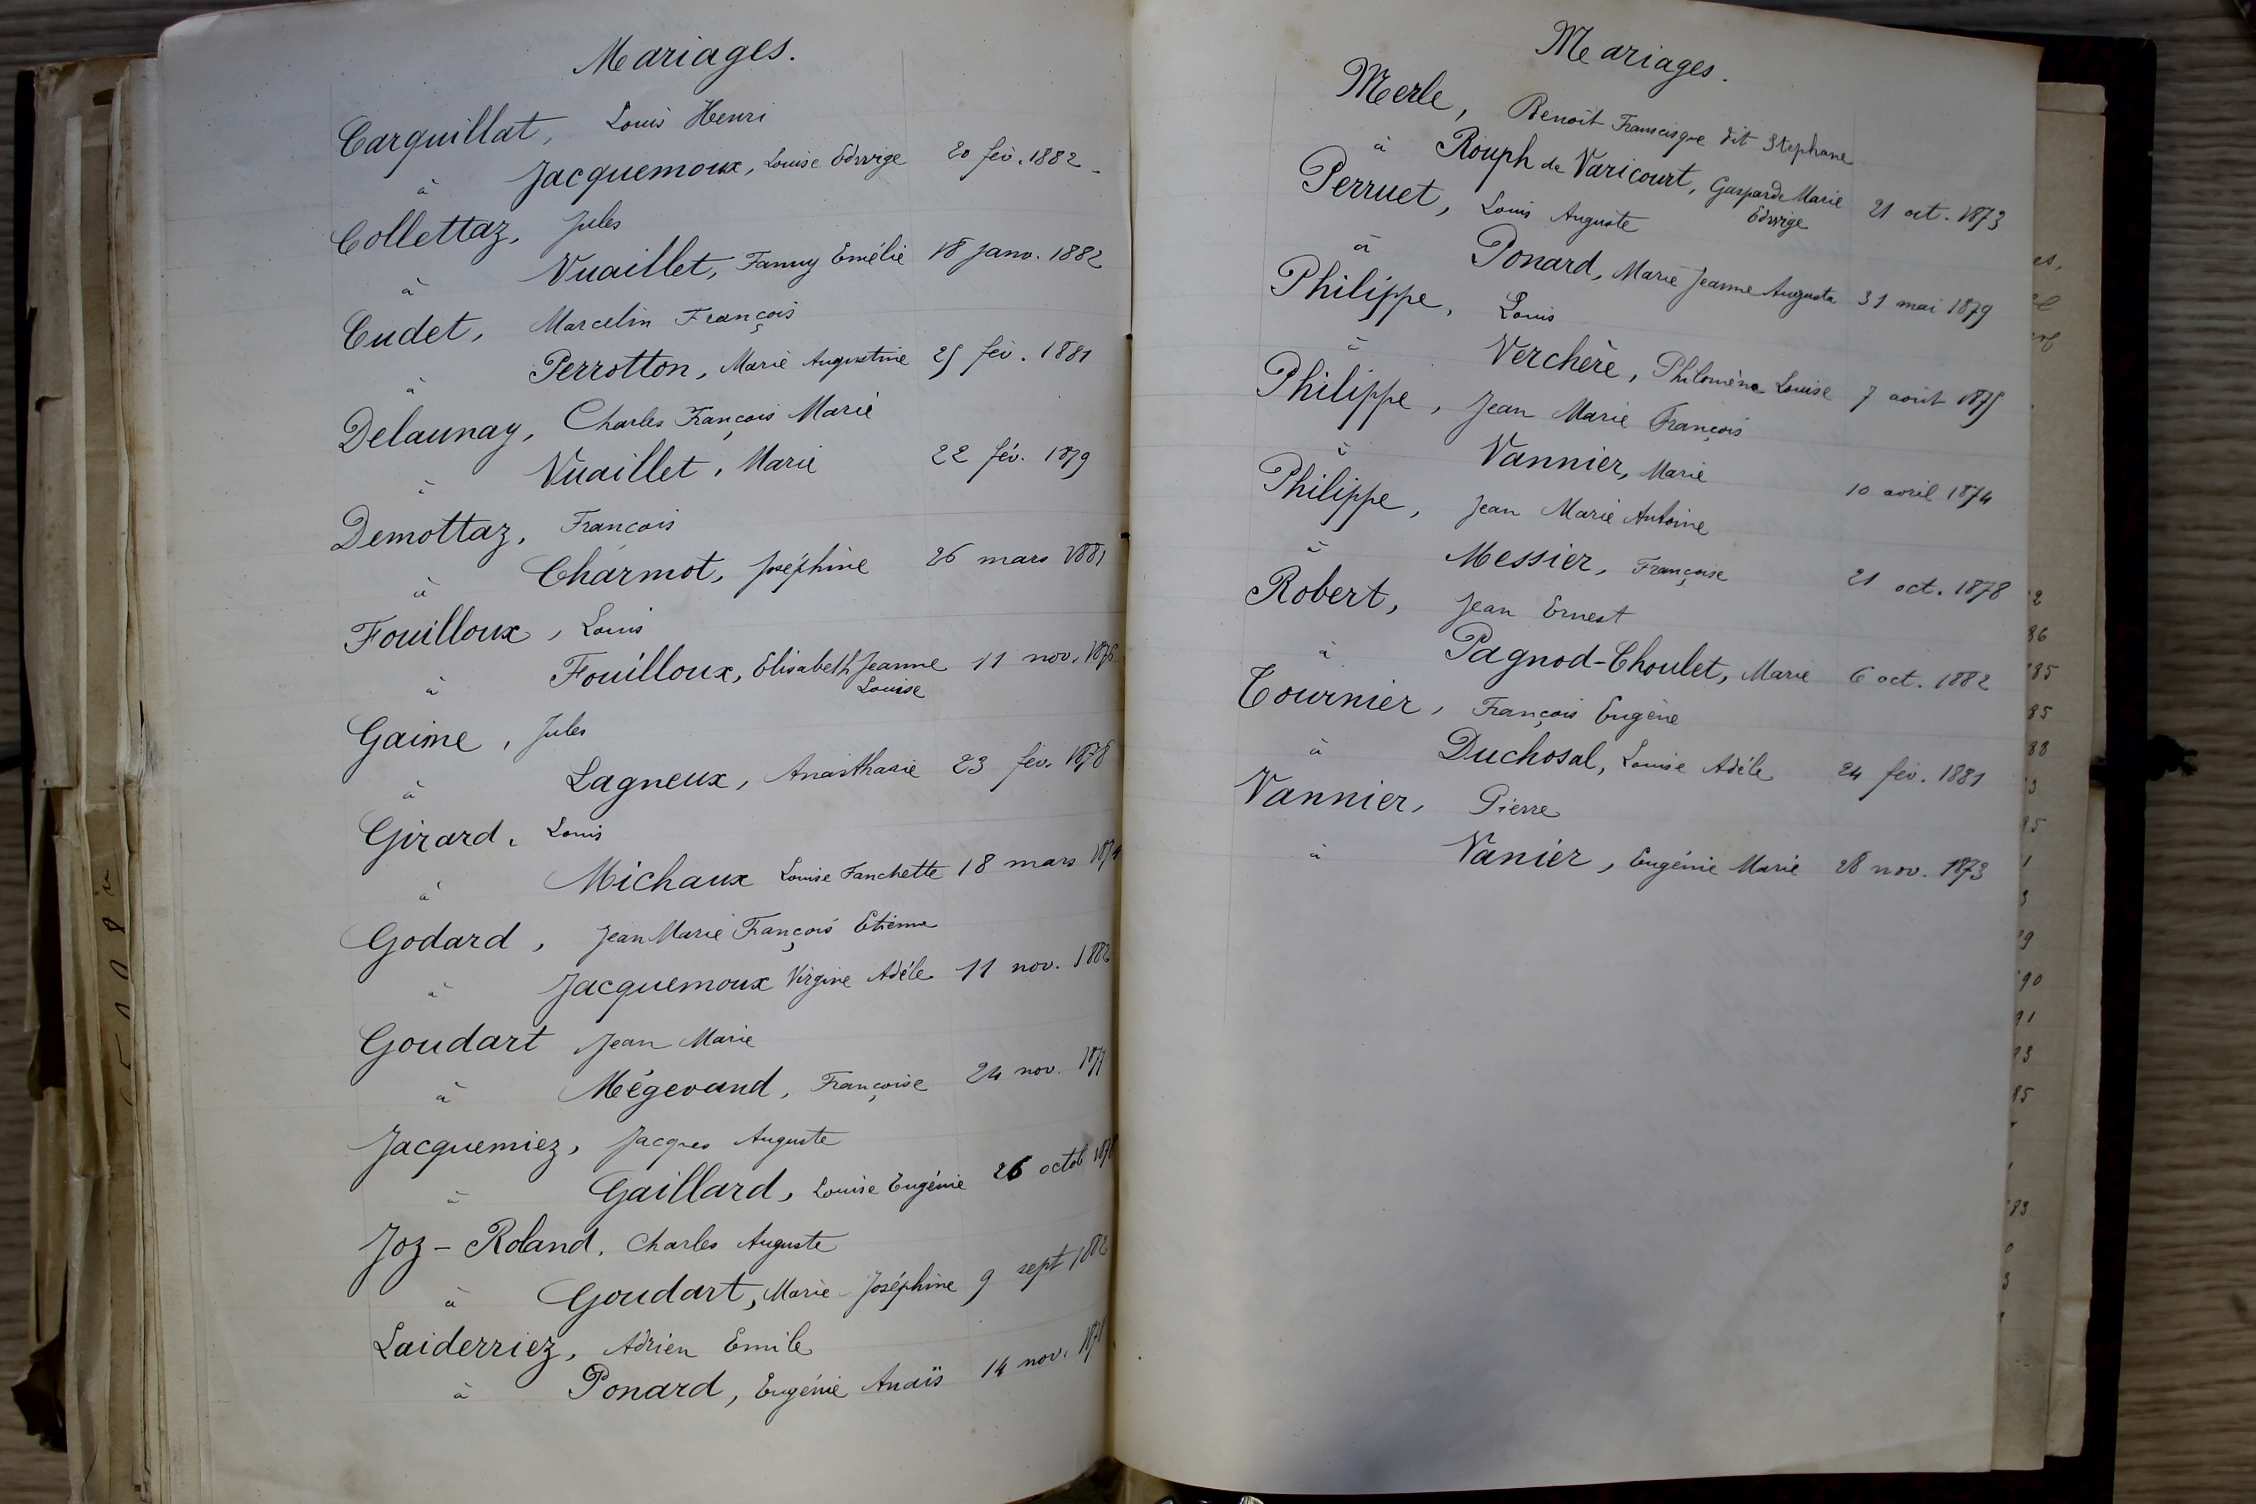 Mariages.
Carquillat, Louis Henri
à Jacquemoux, Louise Edwige 20 fév. 1882
Collettaz, Jules
à Vuaillet, Fanny Emélie 18 janv. 1882
Cudet, Marcelin François
à Perrotton, Marie Augustine 25 fév. 1881
Delaunay, Charles François Marie
à Vuaillet, Marie 22 fév. 1879
Demottaz, François
à Charmot, Joséphine 26 mars 1881
Fouilloux, Louis
à Fouilloux, Elisabeth Jeanne 11 nov. 1876
Louise
Gaime, Jules
à Lagneux, Anasthasie 23 fév. 1878
Girard, Louis
à Michaux Louise Fanchette 18 mars 1874
Godard, Jean Marie François Etienne
à Jacquemoux Virginie Adéle 11 nov. 1882
Goudart Jean Marie
à Mégevand, Françoise 24 nov. 1877
Jacquemiez, Jacques Auguste
à Gaillard, Louise Eugénie 26 octob 1878
Joz-Roland, Charles Auguste
à Goudart, Marie Joséphine 9 sept 1882
Laiderriez, Adrien Emile
à Ponard, Eugénie Anaïs 14 nov. 1878
Mariages.
Merle, Benoît Francisque dit Stephane
à Rouph de Varicourt, Gasparde Marie 21 oct. 1873
Edwige
Perruet, Louis Auguste
à Ponard, Marie Jeanne Augusta 31 mai 1879
Philippe, Louis
à Verchère, Philomène Louise 7 août 1875
Philippe, Jean Marie François
à Vannier, Marie 10 avril 1874
Philippe, Jean Marie Antoine
à Messier, Françoise 21 oct. 1878
Robert, Jean Ernest
à Pagnod-Choulet, Marie 6 oct. 1882
Tournier, François Eugène
à Duchosal, Louise Adéle 24 fév. 1881
Vannier, Pierre
à Vanier, Eugénie Marie 28 nov. 1873